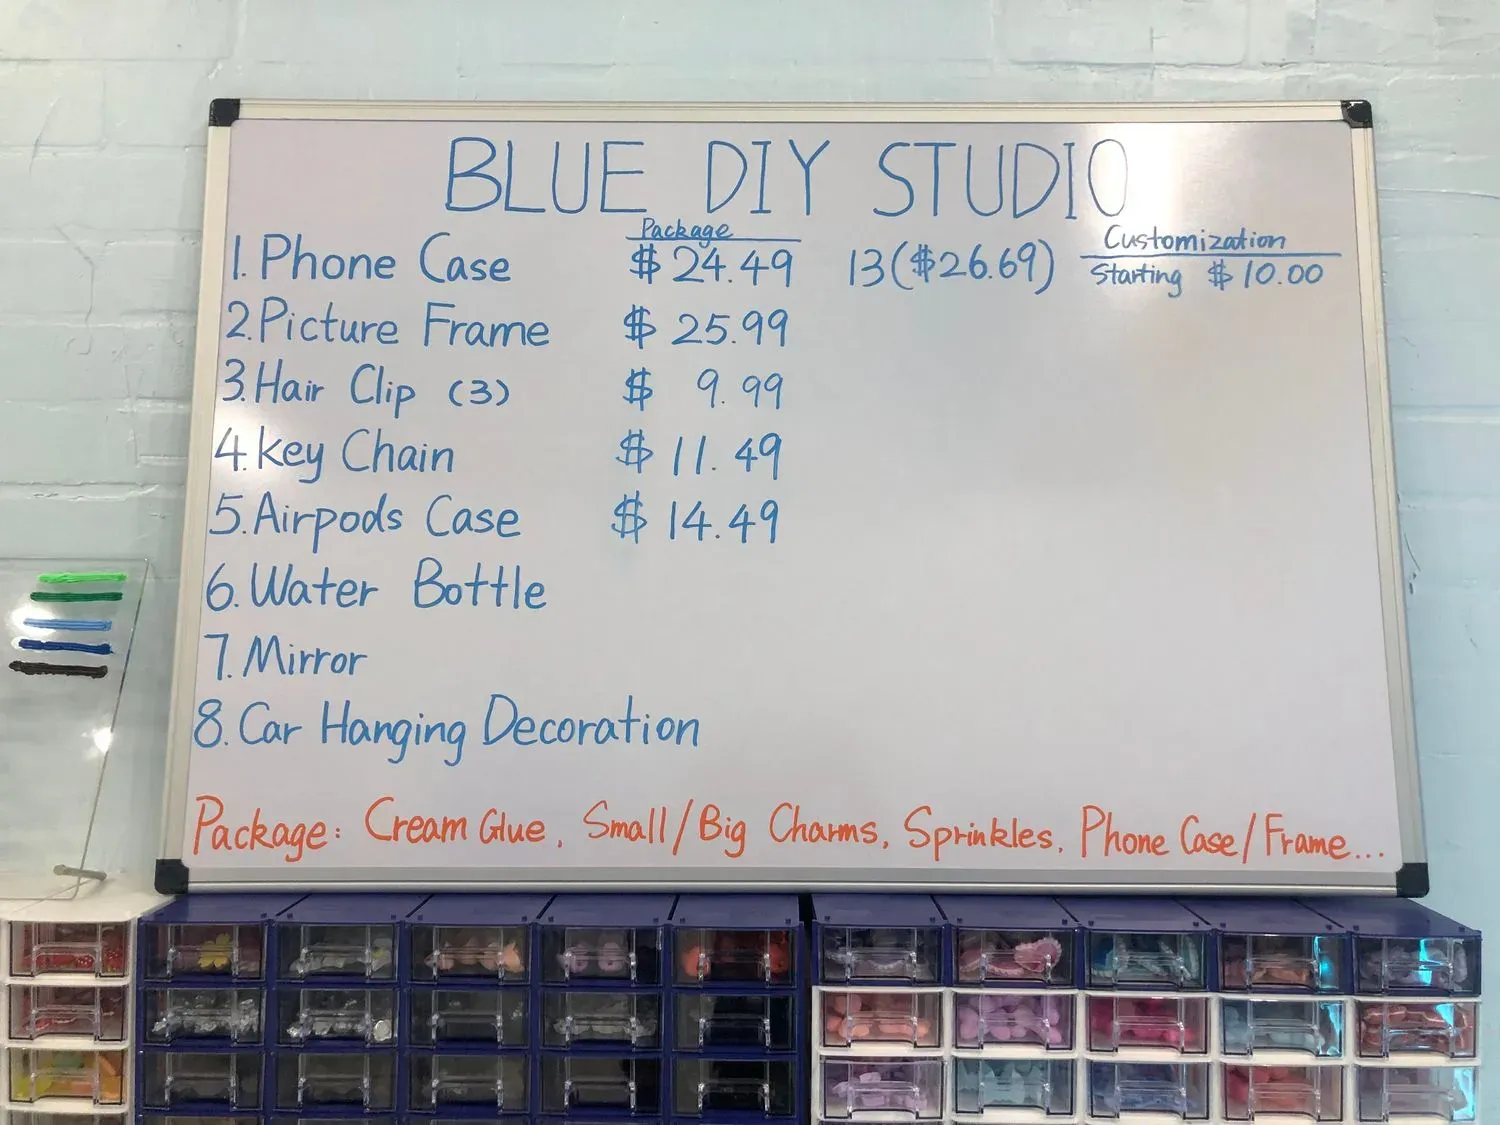 BLUE DIY STUDIO
Package
Customization
1. Phone Case $24.49 13($26.69) Starting $10.00
2. Picture Frame $25.99
3. Hair Clip (3) $9.99
4. Key Chain $11.49
5. Airpods Case $14.49
6. Water Bottle
7. Mirror
8. Car Hanging Decoration
Package: Cream Glue, Small/Big Charms, Sprinkles, Phone Case/Frame...